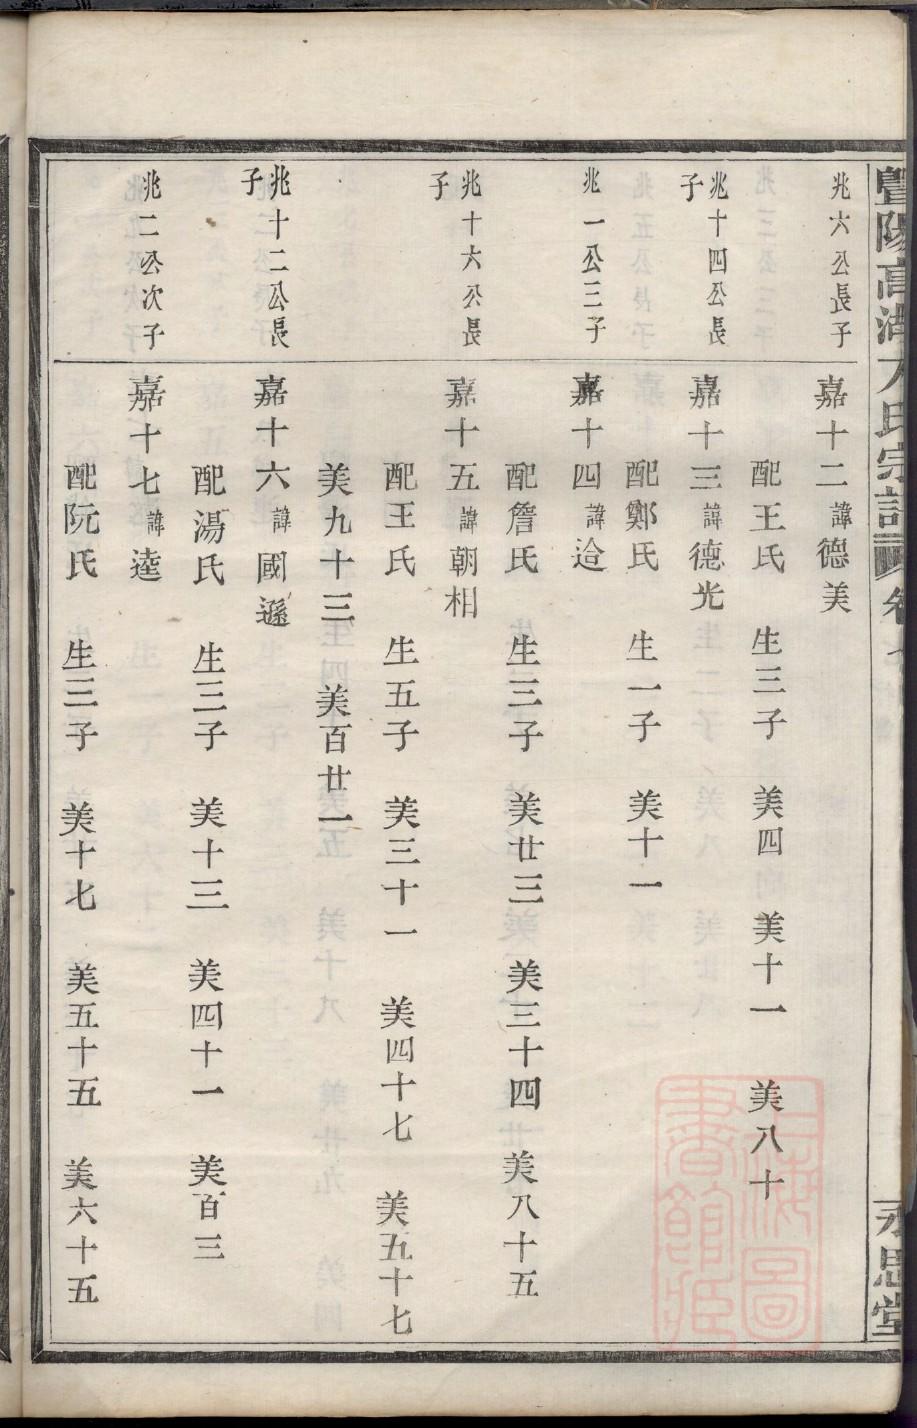 暨陽高湖方氏宗譜 卷七
永思堂
兆六公長子
嘉十二諱德美
配王氏 生三子 美四 美十一 美八十
兆十四公長子
嘉十三諱德光
配鄭氏 生一子 美十一
兆一公三子
嘉十四諱迨
配詹氏 生三子 美廿三 美三十四 美八十五
兆十六公長子
嘉十五諱朝相
配王氏 生五子 美三十一 美四十七 美五十七
美九十三 美百廿一
兆十二公長子
嘉十六諱國遜
配湯氏 生三子 美十三 美四十一 美百三
兆二公次子
嘉十七諱逵
配阮氏 生三子 美十七 美五十五 美六十五
上海圖書館藏